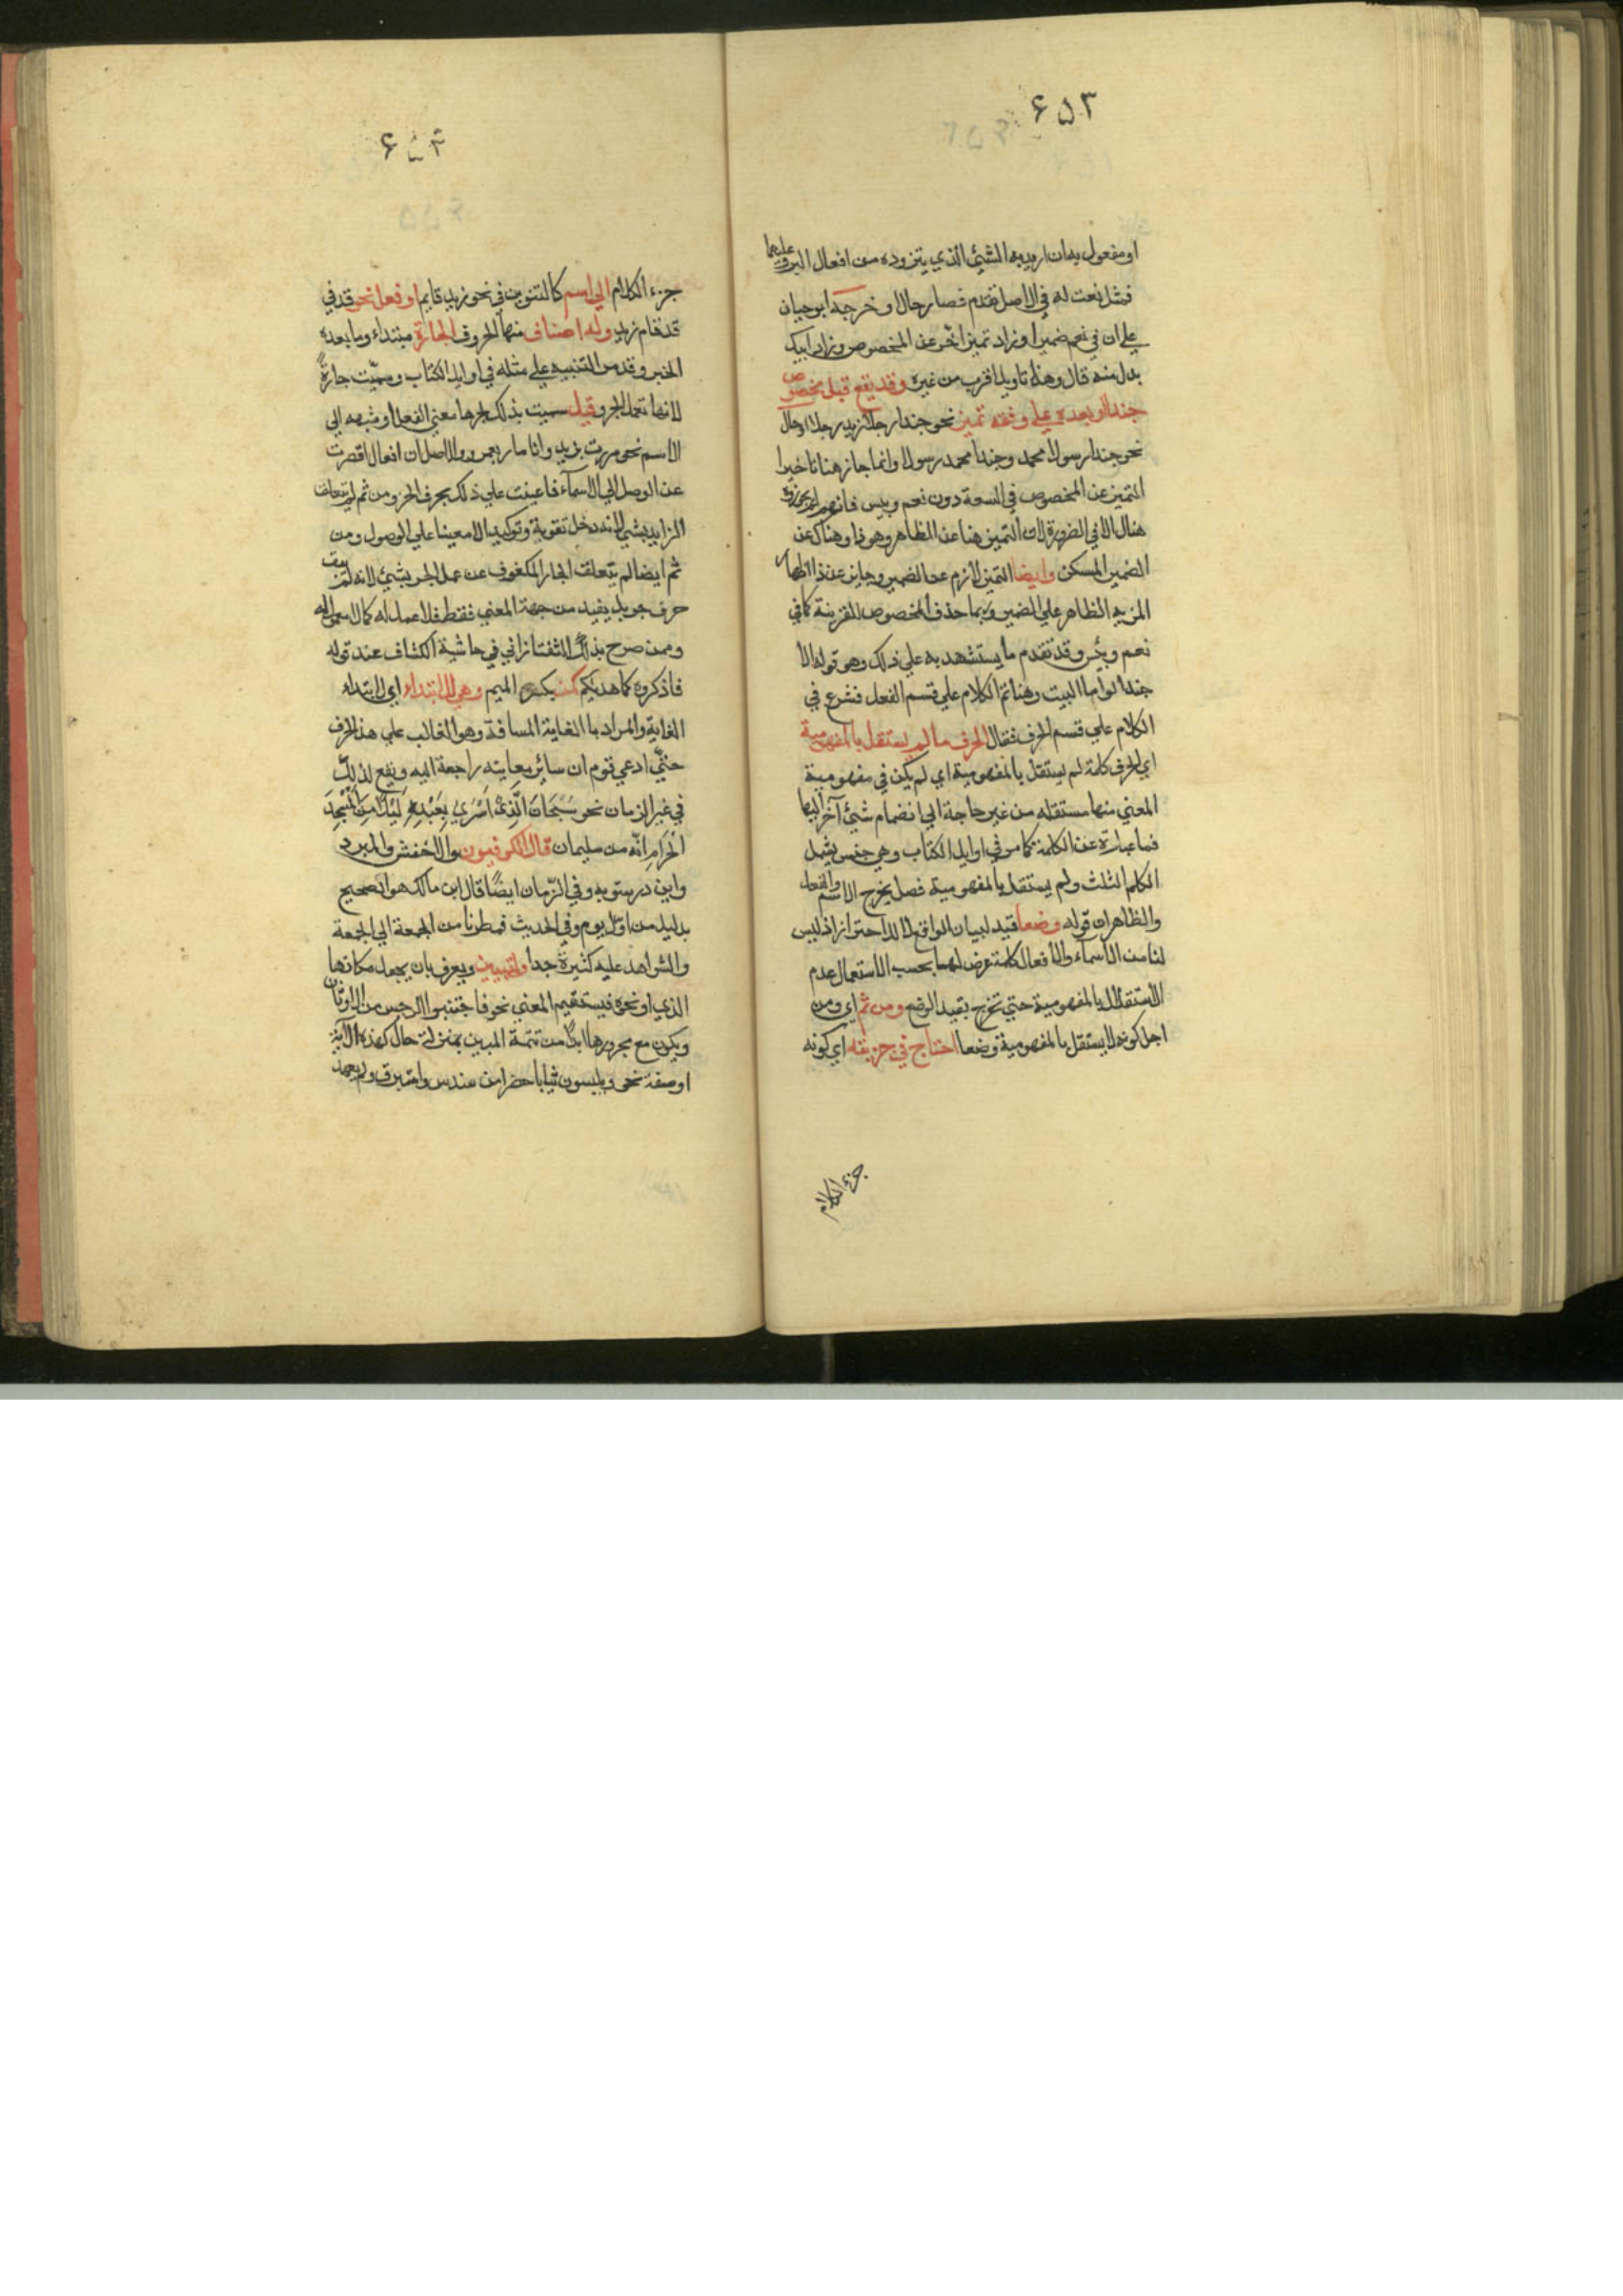 ٦٥٣
او مفعول به ان اريد به الشيئ الذي يتزوده من افعال البر وعليهما
فمثل نعت له في الاصل تقدم فصار حالا وخرجه ابو حيان
علي ان في نعم ضميرا وزاد تميز اخر عن المخصوص وزاد ابيك
بدل منه قال وهذا تاويل اقرب من غيره وقد يقع قبل مخصوص
حبذا او بعده علي وفقه تميز نحو حبذا رجلا زيد رجلا او حال
نحو حبذا رسولا محمد وحبذا محمد رسولا وانما جاز هنا تاخير
التميز عن المخصوص في السعة دون نعم وبيس فانهم لم يجوزوه
هنال الا في الضرورة لان التميز هنا عن الظاهر وهو ذا وهناك عن
الضمير المسكن وايضا التميز لازم عن الضمير وجايز عن ذا اظهار
المزيه الظاهر علي الضمير وربما حذف المخصوص للقرينة كما في
نعم وبئس وقد تقدم ما يستشهد به علي ذلك وهو قوله الا
حبذا لوما البيت وهنا تم الكلام علي قسم الفعل فشرع في
الكلام علي قسم الحرف فقال الحرف ما لم يستقل بالمفهومية
اي الحرف كلمة لم يستقل بالمفهومية اي لم يكن في مفهومية
المعني منها مستقله من غير حاجة الي انضمام شيئ آخر اليها
فما عبارة عن الكلمة كما مر في اوايل الكتاب وهي جنس يشمل
الكلم الثلث ولم يستقل بالمفهومية فصل يخرج الاسم والفعل
والظاهر ان قوله وضعا قيد لبيان الواقع لا للاحتراز اذ ليس
لنا من الاسماء والافعال كلمة عرض لها بحسب الاستعمال عدم
الاستقلال بالمفهومية حتي تخرج بقيد الوضع ومن ثم اي ومن
اجل كونه لا يستقل بالمفهومية وضعا احتاج في جزيته اي كونه
جزء الكلام
٦٥٤
جزء الكلام الي اسم كالتنوين في نحو زيد قايم او فعل نحو قد في
قد قام زيد وله اصناف منها الحروف الجارة مبتداء وما بعده
الخبر وقد مر التنبيه علي مثله في اوايل الكتاب وسميت جارة
لانها تعمل الجر وقيل سميت بذلك لجرها معني الفعل او شبهه الي
الاسم نحو مررت بزيد وانا مار بعمرو والاصل ان افعال اقصرت
عن الوصل الي الاسماء فاعينت علي ذلك بحرف الجر ومن ثم لم يتعلق
الزايد بشيئ لانه دخل تقوية وتوكيدا لا معينا علي الوصول ومن
ثم ايضا لم يتعلق الجار المكفوف عن عمل الجر بشيئ لانه لم يبق
حرف جر بل يفيد من جهة المعني فقط فلا عمل له كما لا معمول له
وممن صرح بذلك التفتازاني في حاشية الكشاف عند قوله
فاذكروه كما هديكم من بكسر الميم وهي للابتداء اي لابتداء
الغاية والمراد بالغاية المسافة وهو الغالب علي هذا الحرف
حتي ادعي قوم ان ساير معانيه راجعة اليه ويقع لذلك
في غير الزمان نحو سُبْحَانَ الَّذِيْ اَسْرَي بِعَبْدِهِ لَيْلًا مِنَ الْمَسْجِدَ
الْحَرَامِ انه من سليمان قال الكوفيون والاخفش والمبرد
وابن درستويه وفي الزمان ايضا قال ابن مالك هو الصحيح
بدليل من اوّل يوم وفي الحديث فمطرنا من الجمعة الي الجمعة
والشواهد عليه كثيرة جدا والتبيين ويعرف بان يجعل مكانها
الذي او نحوه فيستقيم المعني نحو فاجتنبوا الرجس من الاوثان
ويكون مع مجرورها ابدا من تتمة المبين بمنزلة حال كهذه الآية
او صفة نحو ويلبسون ثيابا خضرا من سندس واستبرق ولم يعهد